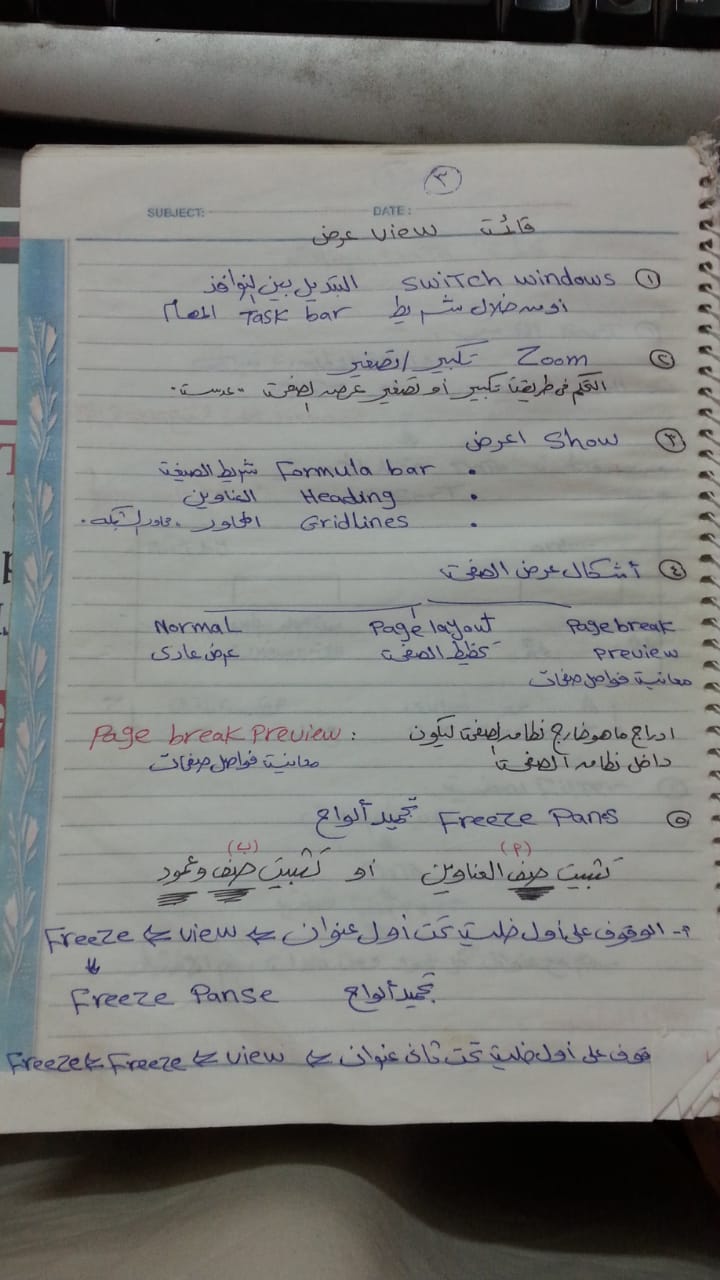 ٣
SUBJECT: DATE:
قائمة view عرض
① Switch windows التبديل بين النوافذ
أو من خلال شريط Task bar المهام
② Zoom تكبير / تصغير
التحكم فى طريقة تكبير أو تصغير عرض الصفحة "عدسة"
③ Show اعرض
• Formula bar شريط الصيغة
• Heading العناوين
• Gridlines المحاور "محاور الشبكة"
④ أشكال عرض الصفحة
Page break Page layout Normal
Preview تخطيط الصفحة عرض عادى
معاينة فواصل صفحات
Page break Preview: ادراج ما هو خارج نطاق الصفحة ليكون
معاينة فواصل صفحات داخل نطاق الصفحة
⑤ Freeze Pans تجميد ألواح
(أ) (ب)
تثبيت صف العناوين أو تثبيت صف وعمود
أ- الوقوف على أول خلية تحت أول عنوان ⇐ view ⇐ Freeze
⇓
Freeze Panse تجميد ألواح
قوف على أول خلية تحت ثانى عنوان ⇐ view ⇐ Freeze ⇐ Freeze